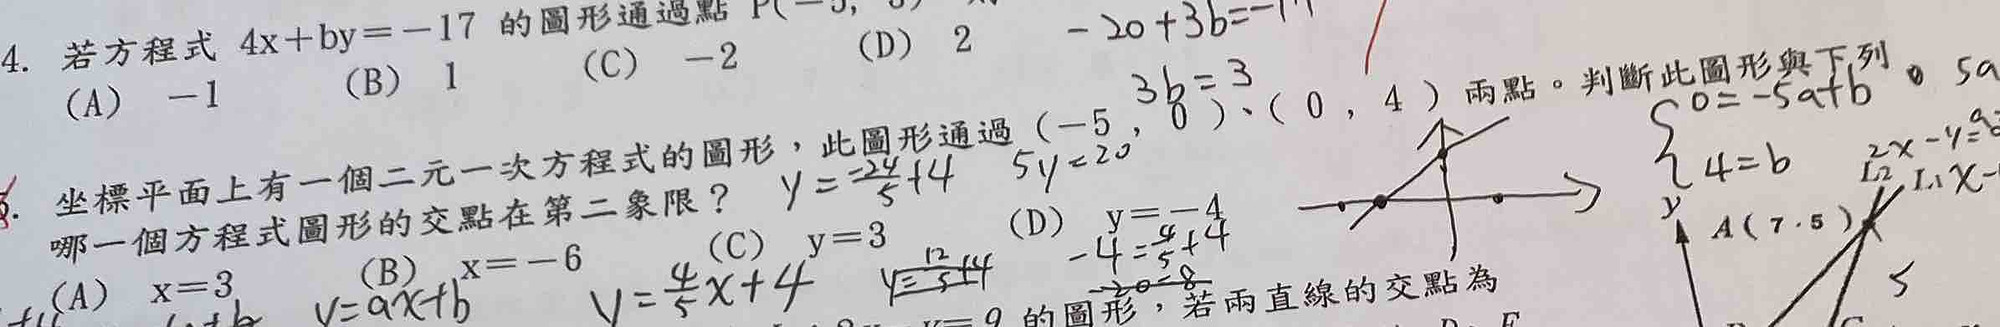 4. 若方程式 4x+by=-17 的圖形通過點 P(-5,
-20+3b=-17
(A) -1 (B) 1 (C) -2 (D) 2
3b=3
坐標平面上有一個二元一次方程式的圖形，此圖形通過(-5,0)、(0,4)兩點。判斷此圖形與下列
哪一個方程式圖形的交點在第二象限？
y=-24/5+4
5y=20
0=-5a+b
4=b
5a
2x-y=9
L2 L1 x-
y
A(7.5)
5
(A) x=3 (B) x=-6 (C) y=3 (D) y=-4
y=ax+b
y=4/5x+4
y=12/5+4
-4=4/5+4
-20=8
y=9 的圖形，若兩直線的交點為